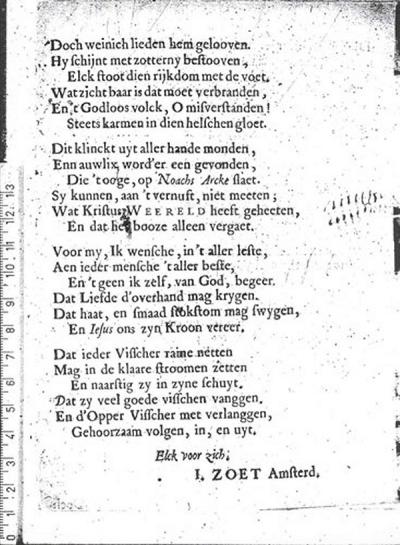 Doch weinich lieden hem gelooven.
Hy schijnt met zotterny bestooven,
Elck stoot dien rijkdom met de voet.
Wat zicht baar is dat moet verbranden,
En 't Godloos volck, O misverstanden!
Steets karmen in dien helschen gloet.
Dit klinckt uyt aller hande monden,
Enn auwlix word'er een gevonden,
Die 't ooge, op Noachs Arcke slaet.
Sy kunnen, aan 't vernuft, niet meeten;
Wat Kristus WEERELD heeft geheeten,
En dat het booze alleen vergaet.
Voor my, Ik wensche, in 't aller leste,
Aen ieder mensche 't aller beste,
En 't geen ik zelf, van God, begeer.
Dat Liefde d'overhand mag krygen.
Dat haat, en smaad stokstom mag swygen,
En Iesus ons zyn Kroon vereer.
Dat ieder Visscher raine netten
Mag in de klaare stroomen zetten
En naarstig zy in zyne schuyt.
Dat zy veel goede visschen vanggen.
En d'Opper Visscher met verlanggen,
Gehoorzaam volgen, in, en uyt.
Elck voor zich.
I. ZOET Amsterd.
0 1 2 3 4 5 6 7 8 9 10 11 12 13